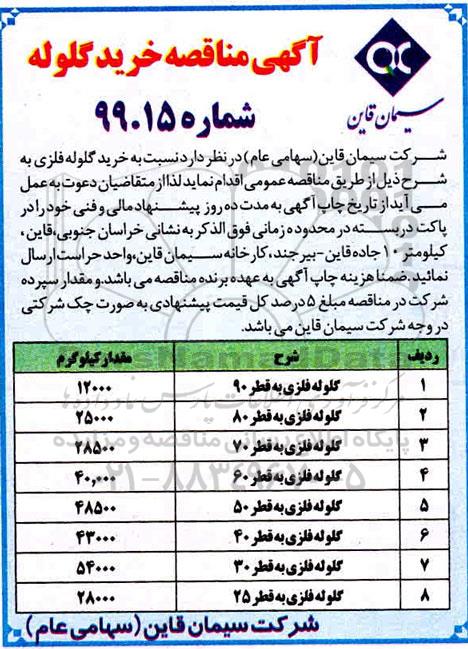 آگهی مناقصه خرید گلوله
شماره ۹۹.۱۵
QC
سیمان قاین
شرکت سیمان قاین(سهامی عام) در نظر دارد نسبت به خرید گلوله فلزی به
شرح ذیل از طریق مناقصه عمومی اقدام نماید لذا از متقاضیان دعوت به عمل
می آید از تاریخ چاپ آگهی به مدت ده روز پیشنهاد مالی و فنی خود را در
پاکت در بسته در محدوده زمانی فوق الذکر به نشانی خراسان جنوبی،قاین ،
کیلومتر ۱۰ جاده قاین-بیرجند، کارخانه سیمان قاین،واحد حراست ارسال
نمائید. ضمنا هزینه چاپ آگهی به عهده برنده مناقصه می باشد.و مقدار سپرده
شرکت در مناقصه مبلغ ۵ درصد کل قیمت پیشنهادی به صورت چک شرکتی
در وجه شرکت سیمان قاین می باشد.
ردیف شرح مقدار کیلوگرم
۱ گلوله فلزی به قطر ۹۰ ۱۲۰۰۰
۲ گلوله فلزی به قطر ۸۰ ۲۵۰۰۰
۳ گلوله فلزی به قطر ۷۰ ۲۸۵۰۰
۴ گلوله فلزی به قطر ۶۰ ۴۰,۰۰۰
۵ گلوله فلزی به قطر ۵۰ ۴۸۵۰۰
۶ گلوله فلزی به قطر ۴۰ ۴۳۰۰۰
۷ گلوله فلزی به قطر ۳۰ ۵۴۰۰۰
۸ گلوله فلزی به قطر ۲۵ ۲۸۰۰۰
شرکت سیمان قاین (سهامی عام)
پایگاه اطلاع رسانی مناقصه و مزایده